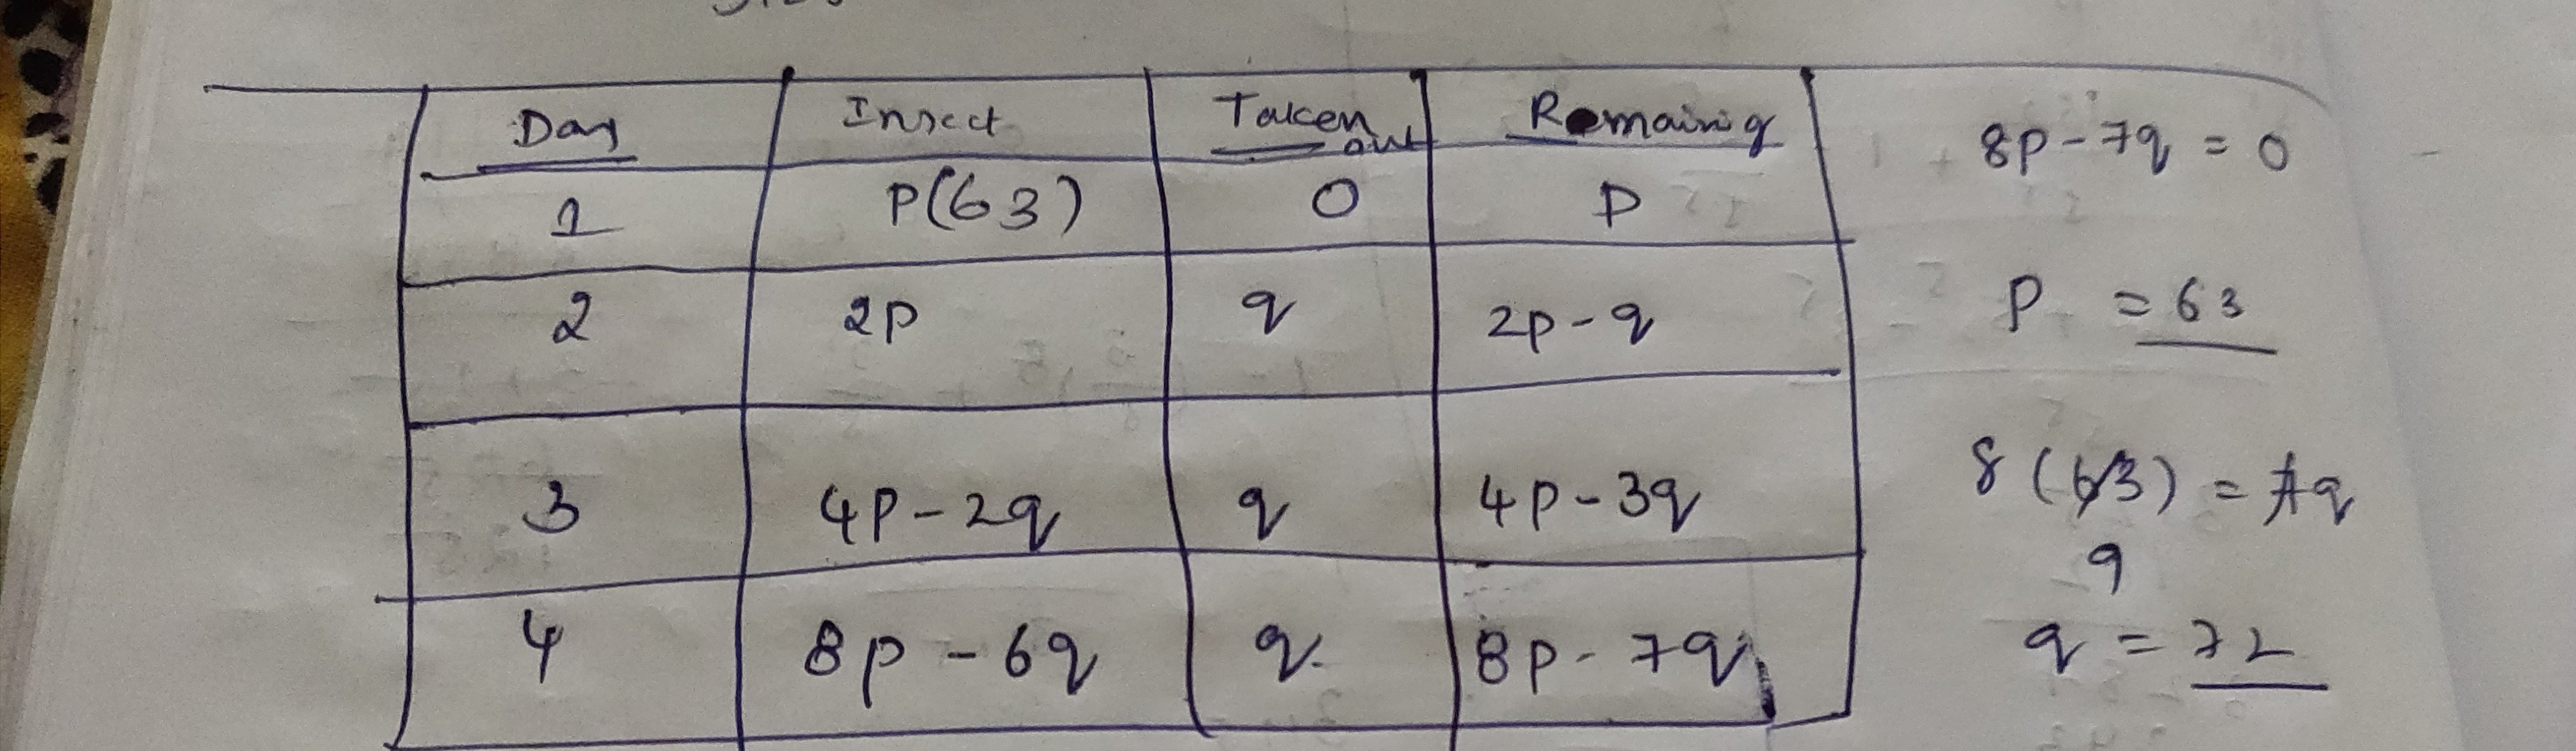 Day Insect Taken out Remaing
1 P(63) 0 P
2 2P q 2p-q
3 4P-2q q 4p-3q
4 8p-6q q. 8p-7q
8p-7q=0
P = 63
8(63)=7q
9
q = 72